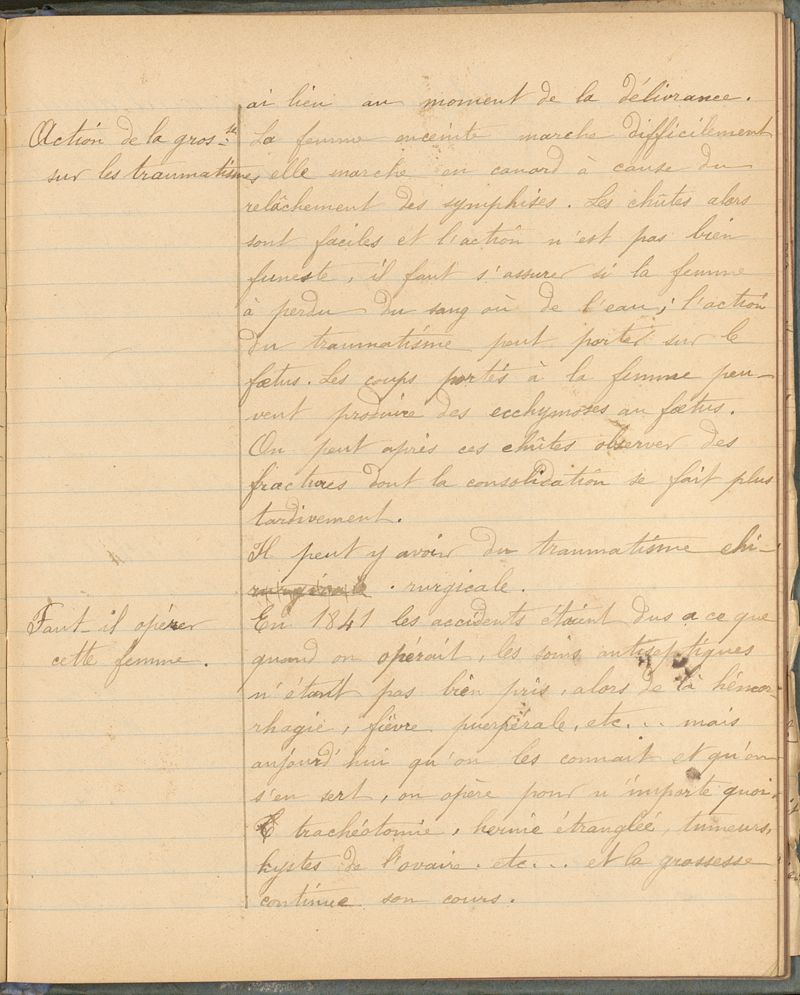 ai lieu au moment de la délivrance.
Action de la gros-se
La femme enceinte marche difficilement
sur les traumatismes
elle marche en canard à cause du
relâchement des symphises. Les chûtes alors
sont faciles et l'action n'est pas bien
funeste, il faut s'assurer si la femme
à perdu du sang où de l'eau; l'action
du traumatisme peut porter sur le
fœtus. Les coups portés à la femme peu-
vent produire des ecchymoses au fœtus.
On peut après ces chûtes observer des
fractures dont la consolidation se fait plus
tardivement.
Il peut y avoir du traumatisme chi-
. rurgicale.
Faut-il opérer
En 1841 les accidents étaient dus a ce que
cette femme.
quand on opérait, les soins antiseptiques
n'étant pas bien pris, alors de là hémor-
rhagie, fièvre puerpérale, etc... mais
aujourd'hui qu'on les connait et qu'on
s'en sert, on opère pour n'importe quoi.
trachéotomie, hernie étranglée, tumeurs,
kystes de l'ovaire. etc... et la grossesse
continue son cours.